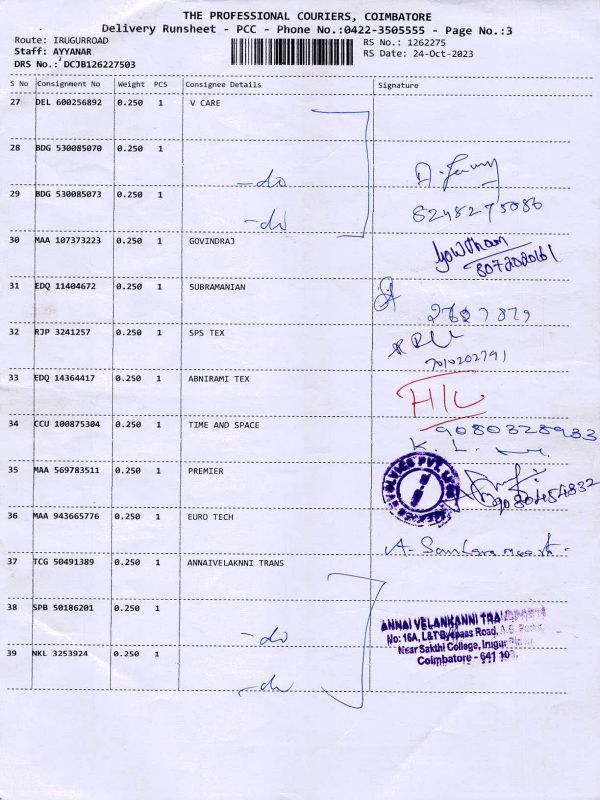 THE PROFESSIONAL COURIERS, COIMBATORE
Delivery Runsheet - PCC - Phone No.:0422-3505555 - Page No.:3
Route: IRUGURROAD
RS No.: 1262275
Staff: AYYANAR
RS Date: 24-Oct-2023
DRS No.: DCJB126227503
S No Consignment No Weight PCS Consignee Details Signature
27 DEL 600256892 0.250 1 V CARE
28 BDG 530085070 0.250 1
-do
29 BDG 530085073 0.250 1
8248275086
-do
30 MAA 107373223 0.250 1 GOVINDRAJ
Gowtham
8072020161
31 EDQ 11404672 0.250 1 SUBRAMANIAN
32 RJP 3241257 0.250 1 SPS TEX
7010202791
33 EDQ 14364417 0.250 1 ABNIRAMI TEX
H/L
34 CCU 100875304 0.250 1 TIME AND SPACE
9080328933
K. L.
35 MAA 569783511 0.250 1 PREMIER
9080454832
36 MAA 943665776 0.250 1 EURO TECH
37 TCG 50491389 0.250 1 ANNAIVELAKNNI TRANS
38 SPB 50186201 0.250 1
-do
ANNAI VELANKANNI
No: 16A, L&T Byepaas Road,
Near Sakthi College, Irugur
Coimbatore - 641 103.
39 NKL 3253924 0.250 1
-do